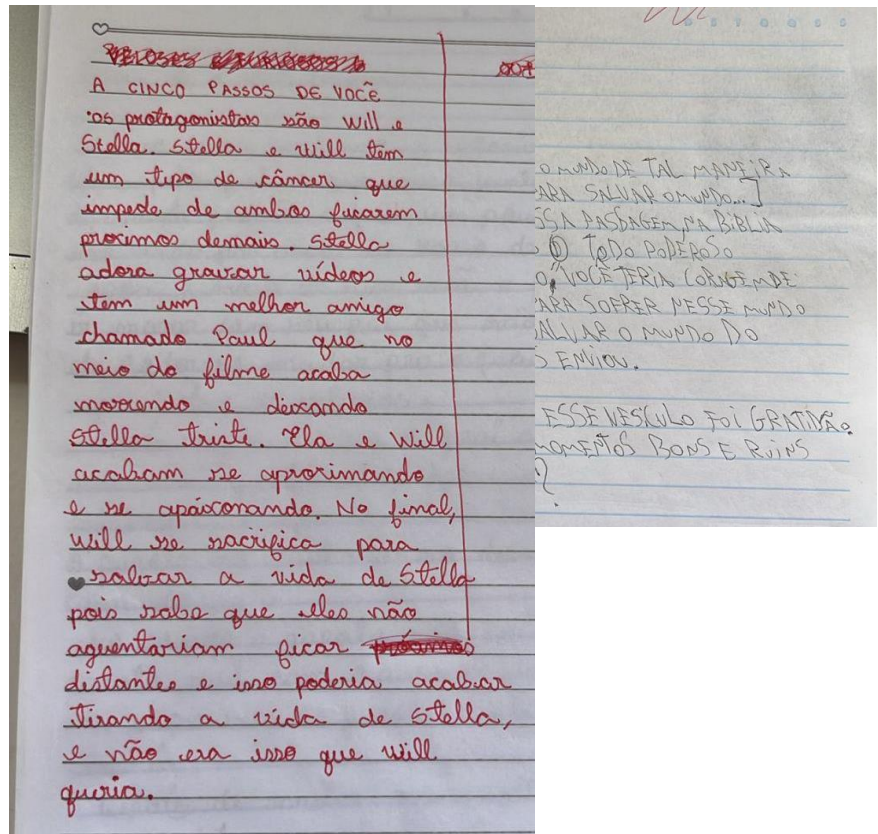 A CINCO PASSOS DE VOCÊ
:os protagonistas são Will e
Stella. Stella e Will tem
um tipo de câncer que
impede de ambos ficarem
proximos demais. Stella
adora gravar vídeos e
tem um melhor amigo
chamado Paul que no
meio do filme acaba
morrendo e deixando
Stella triste. Ela e Will
acabam se aproximando
e se apaixonando. No final,
Will se sacrifica para
salvar a vida de Stella
pois sabe que eles não
aguentariam ficar
distantes e isso poderia acabar
tirando a vida de Stella,
e não era isso que will
queria.
O MUNDO DE TAL MANEIRA
ARA SALVAR O MUNDO...]
SSA PASSAGEM NA BIBLIA
O TODO PODEROSO
O, VOCÊ TERIA CORAGEM DE
ARA SOFRER NESSE MUNDO
ALVAR O MUNDO DO
S ENVIOU.
ESSE VESÍCULO FOI GRATIDÃO.
MOMENTOS BONS E RUINS
?